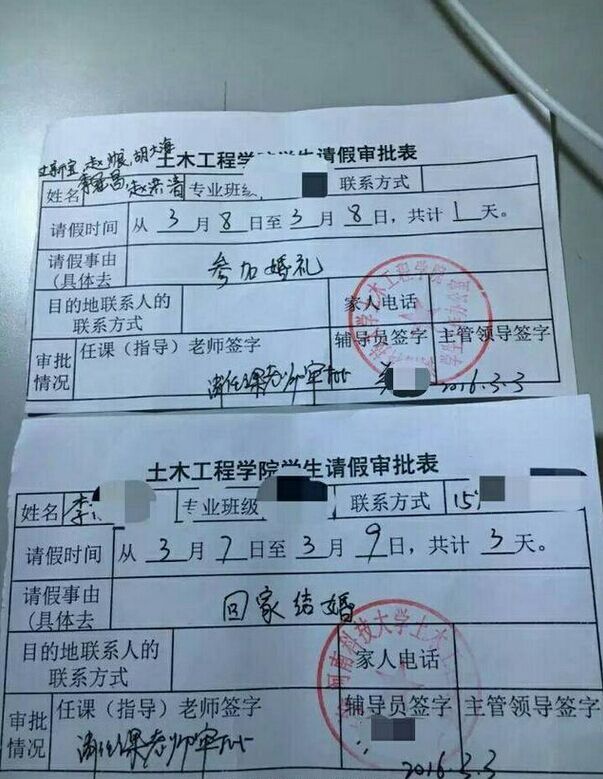 土木工程学院学生请假审批表
赵娘 胡大海
姓名 赵荣清 专业班级 联系方式
请假时间 从 3 月 8 日至 3 月 8 日，共计 1 天。
请假事由 参加婚礼
(具体去
目的地联系人的 家人电话
联系方式
审批 任课（指导）老师签字 辅导员签字 主管领导签字
情况 请任课老师审批 2016.3.3
土木工程学院学生请假审批表
姓名 李 专业班级 联系方式 15
请假时间 从 3 月 7 日至 3 月 9 日，共计 3 天。
请假事由 回家结婚
(具体去
河南科技大学土木工
目的地联系人的 家人电话
联系方式
审批 任课（指导）老师签字 辅导员签字 主管领导签字
情况 请任课老师审批 2016.3.3